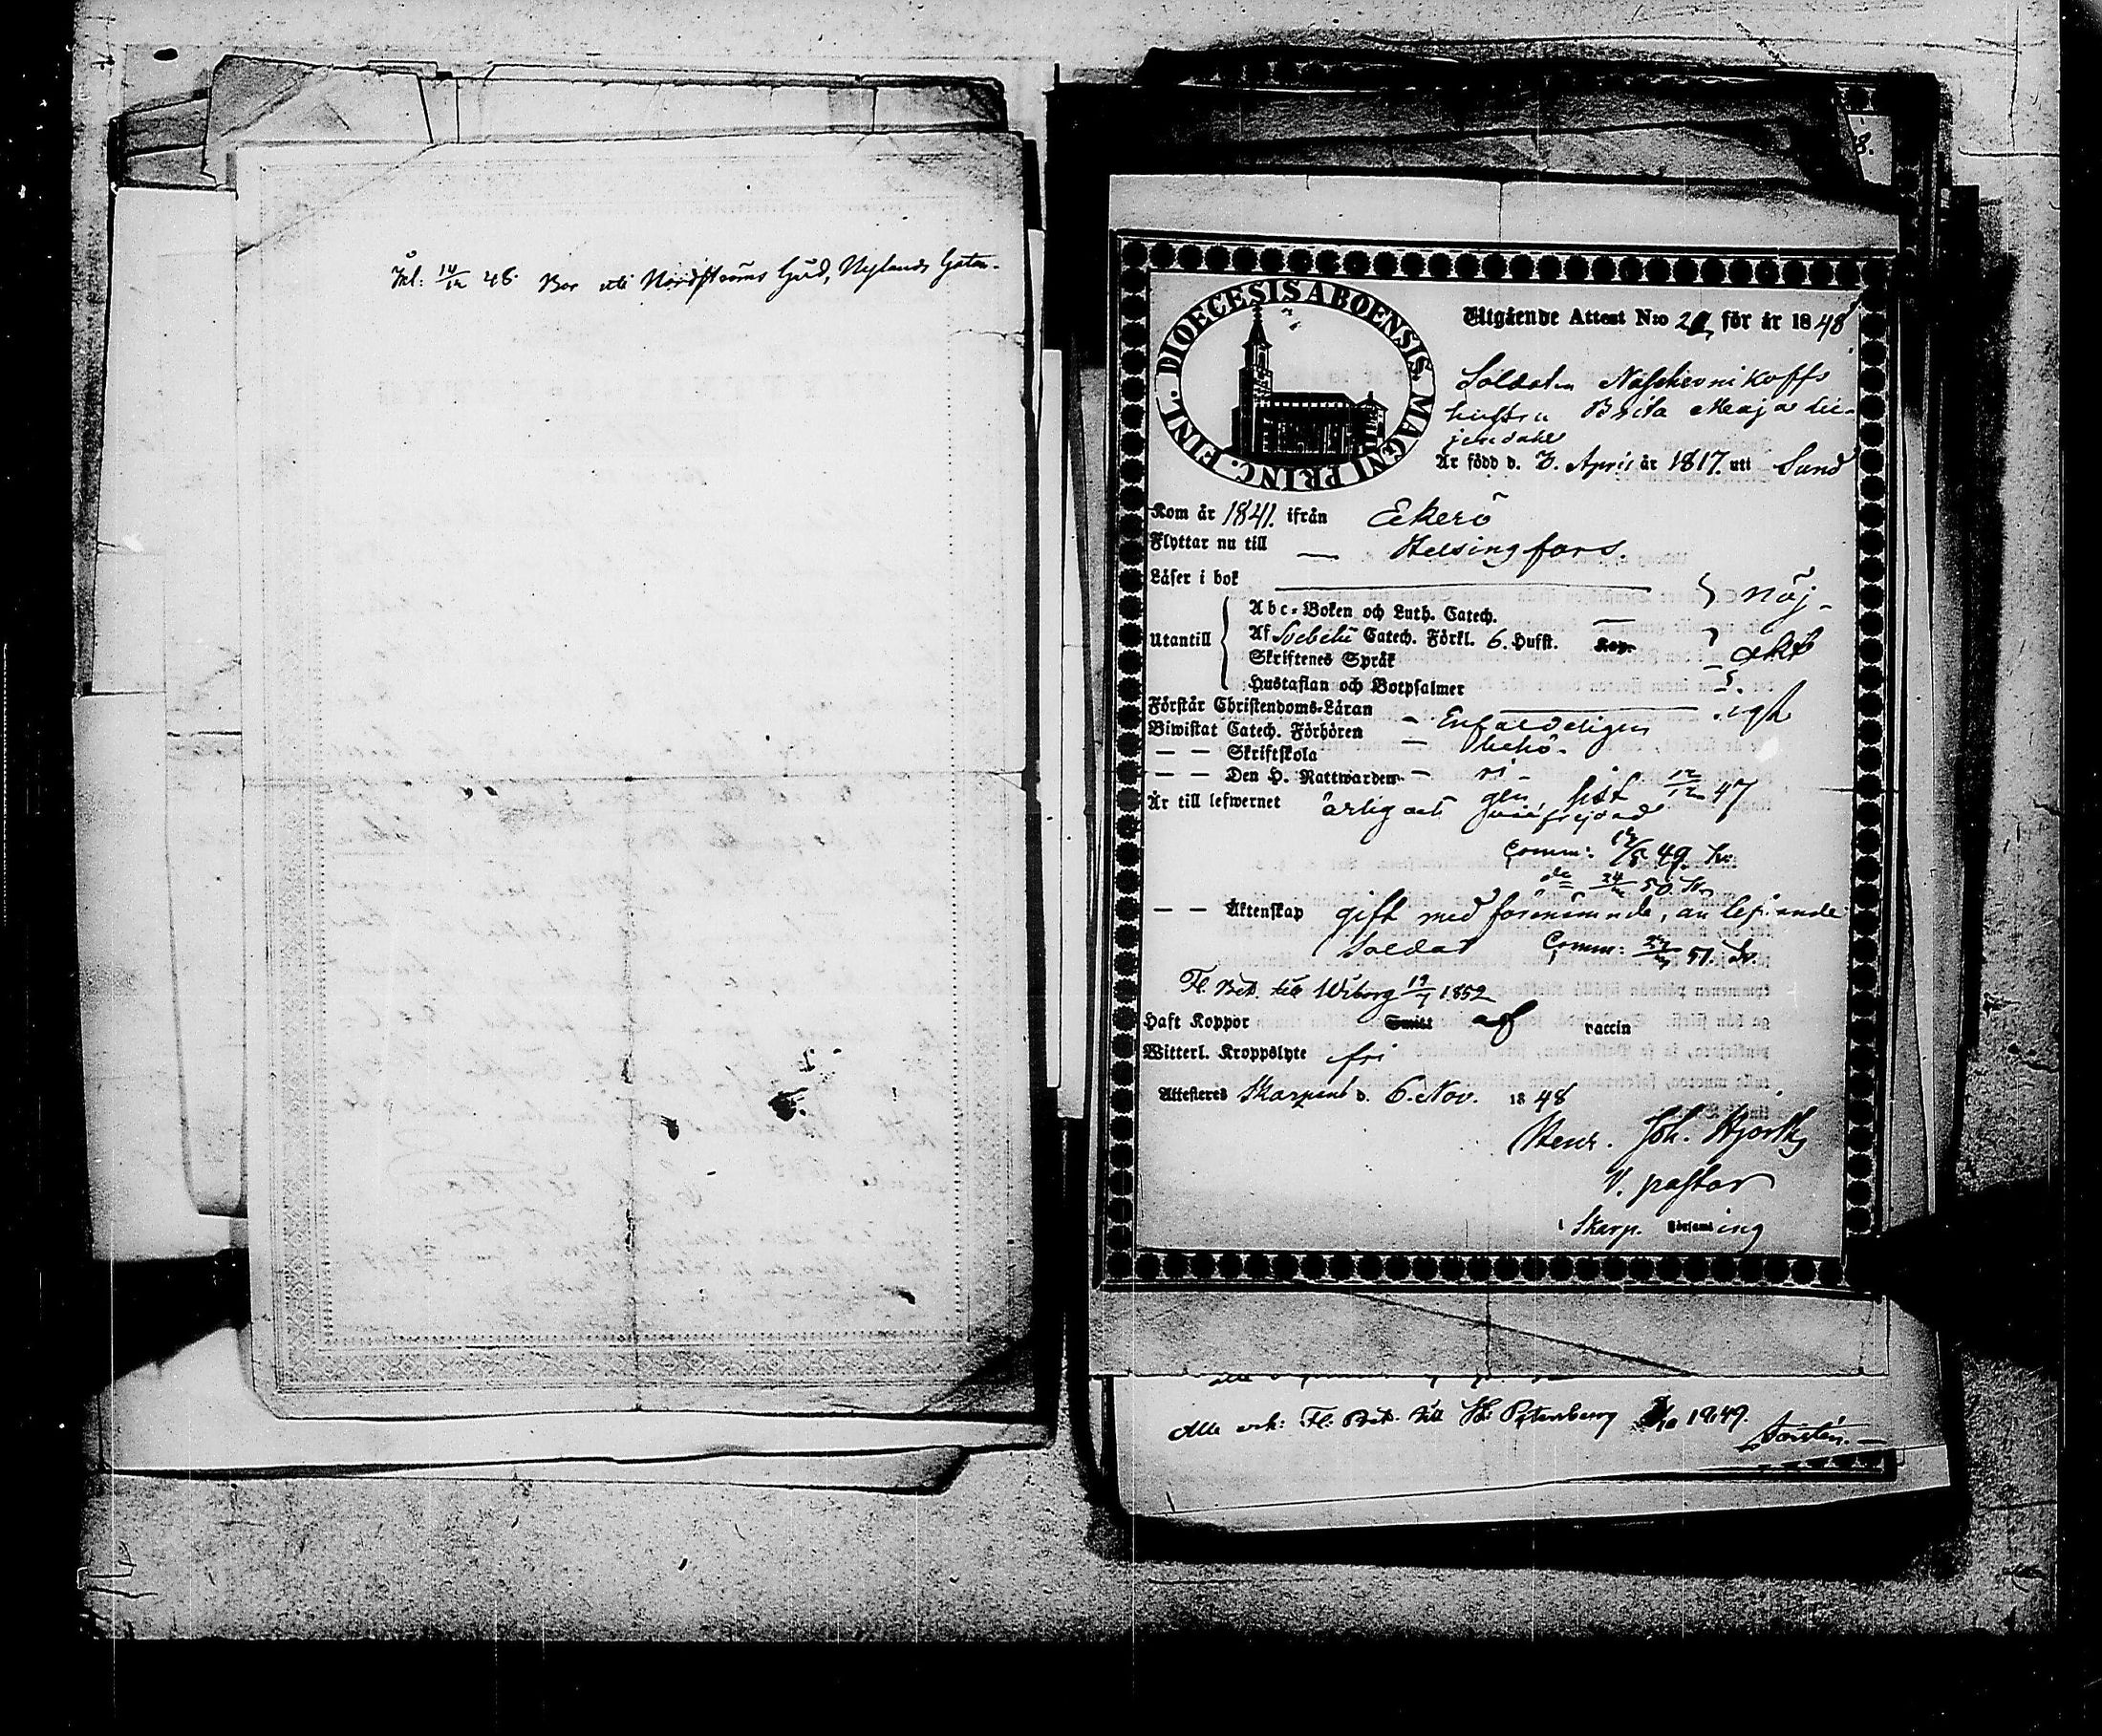 Inl: 14/12 48. Bor uti Nordströms Gård, Nylands Gatan.
DIOECESIS ABOENSIS. MAGNI PRINC. FINL.
Utgående Attest N:o för år 1848
Soldaten Naschevnikoffs
hustru Brita Maja Lil-
jendahl
Är född d. 3. April år 1817. uti Sund
Kom år 1841. ifrån Ekerö
Flyttar nu till — Helsingfors.
Läser i bok nöj-
Utantill
Abc-Boken och Luth. Catech.
Af Svebelii Catech. Förkl. 6. Hufst. akt
Skriftenes Språk
Hustaflan och Botpsalmer
Förstår Christendoms-Läran — Enfaldeligen
Biwistat Catech. Förhören — behö-
— — Skriftskola ri-
— — Den H. Nattwarden — gen sist 12/12 47
Är till lefwernet ärlig och frejdad
Comm: 49.
do 24 50.
— — Äktenskap gift med förenämnde, än lefvande
Soldat Comm: 51.
Fl. Bet. till Wiborg 19/7 1852
Haft Koppor Smitt af vaccin
Witterl. Kroppslyte fri
Attesteras Skarpans d. 6. Nov. 1848
Henr. Joh. Hjorth
V. pastor
i Skarp. Församling
Alla erh: Fl. Bet. till St. Petersberg 1849.